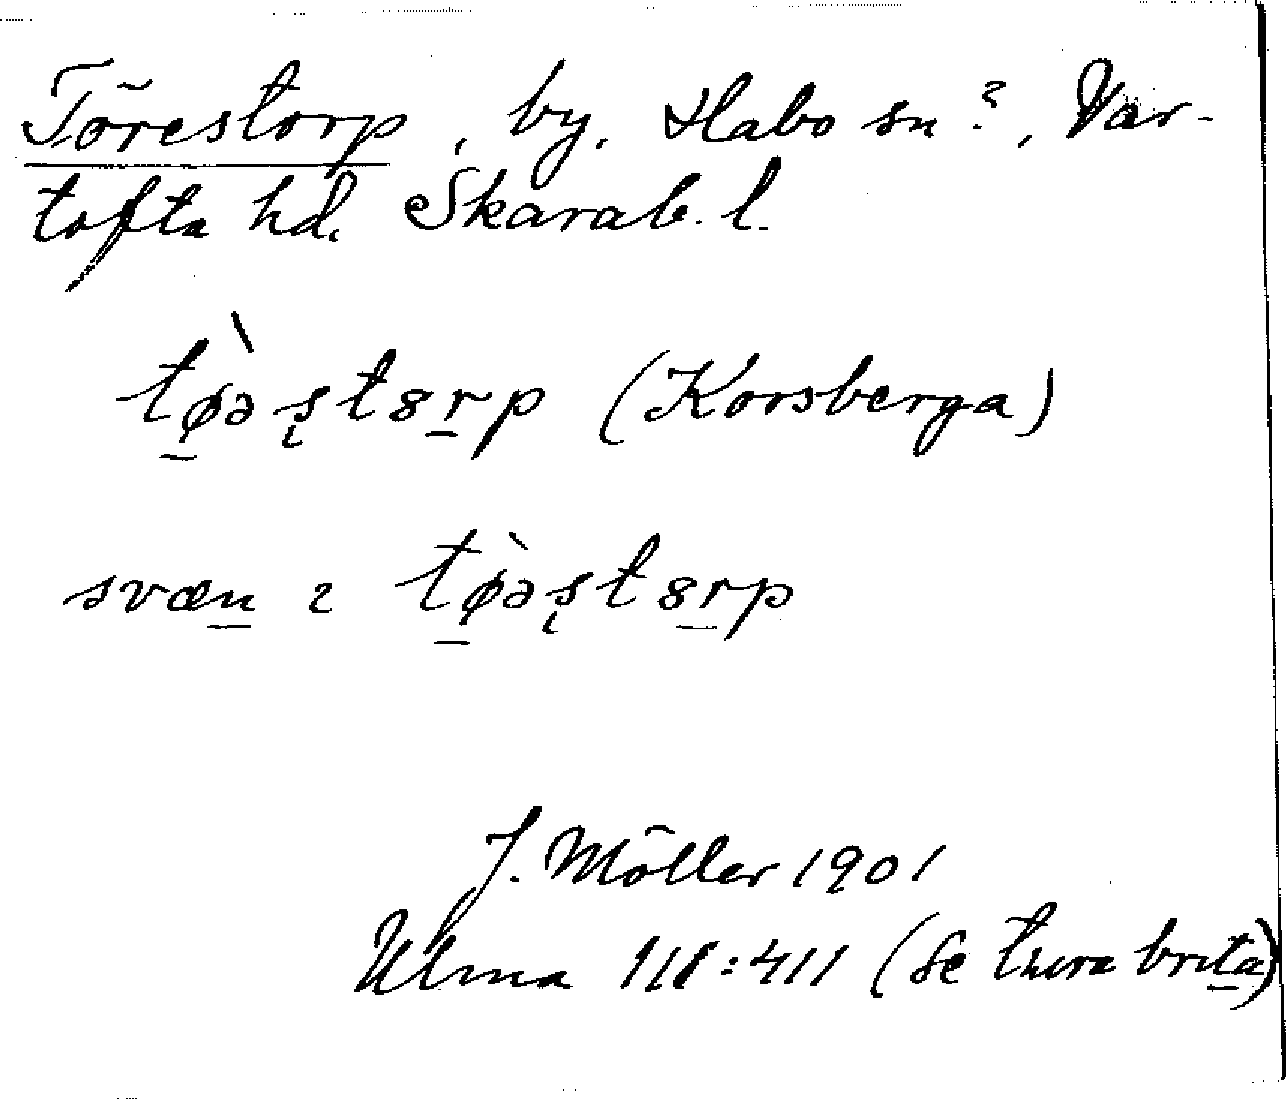 Törestorp, by, Habo sn?, Var-
tofta hd. Skarab. l.
tø̀əʂtȣrp (Korsberga)
svæn ɩ tø̀əʂtȣrp
J. Möller 1901
Ulma 118:411 (se tura brita)